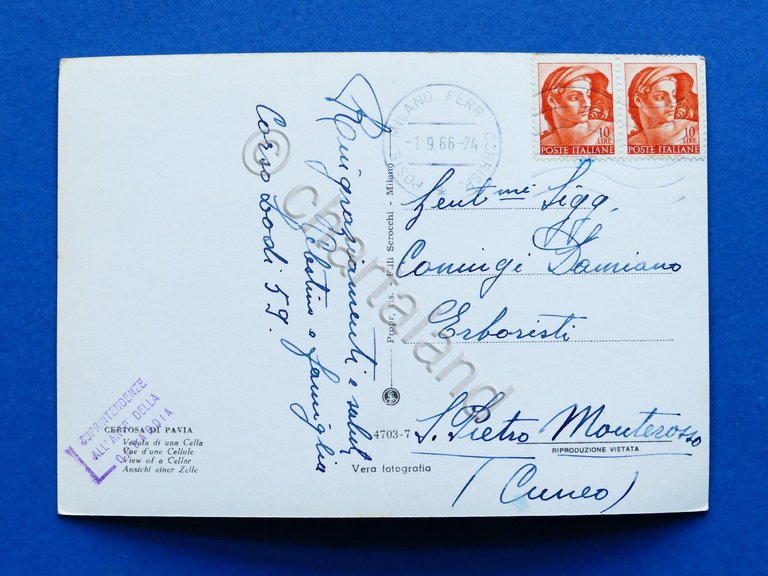 Ringraziamenti e saluti
Albertino e famiglia
Corso Lodi 59.
POSTE MILANO FERR. CORRISP. *
-1.9.66-24
10
LIRE
POSTE ITALIANE
10
LIRE
POSTE ITALIANE
Gent.mi Sigg.
Comingi Damiano
Erboristi
S. Pietro Monterosso
(Cuneo)
RIPRODUZIONE VIETATA
Propr. ris. F.lli Serocchi - Milano
4703-7
Vera fotografia
CERTOSA DI PAVIA
Veduta di una Cella
Vue d'une Cellule
View of a Cellar
Ansichi einer Zelle
SOPRINTENDENZE
ALL'ARTE DELLA
© chartaland